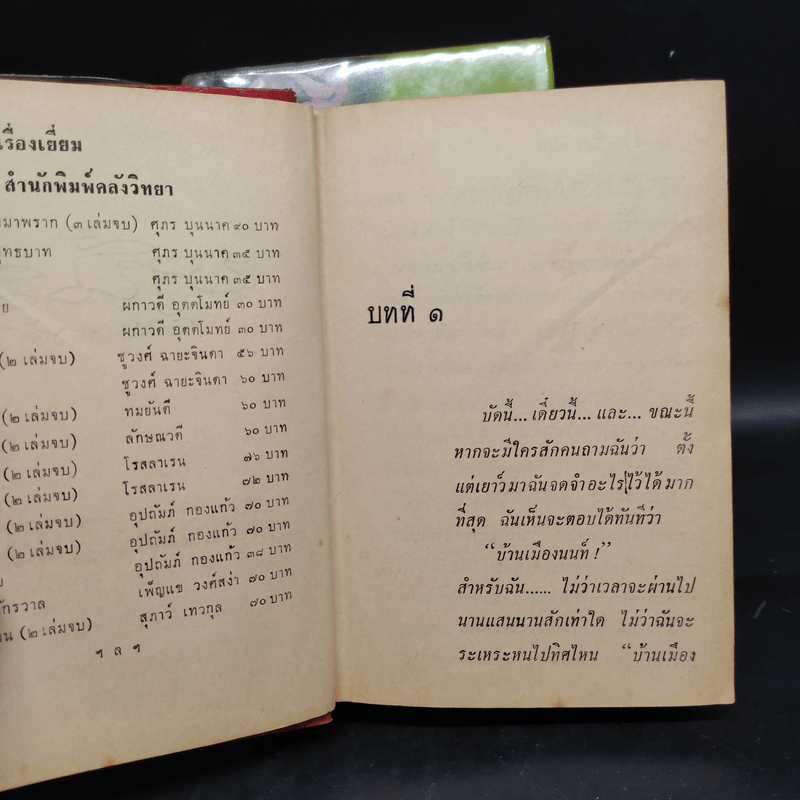 เรื่องเยี่ยม
สำนักพิมพ์คลังวิทยา
มาพราก (๓ เล่มจบ) ศุภร บุนนาค ๙๐ บาท
ุทธบาท ศุภร บุนนาค ๓๕ บาท
ศุภร บุนนาค ๓๕ บาท
ย ผกาวดี อุตตโมทย์ ๓๐ บาท
ผกาวดี อุตตโมทย์ ๓๐ บาท
(๒ เล่มจบ) ชูวงศ์ ฉายะจินดา ๕๖ บาท
ชูวงศ์ ฉายะจินดา ๖๐ บาท
(๒ เล่มจบ) ทมยันตี ๖๐ บาท
(๒ เล่มจบ) ลักษณวดี ๖๐ บาท
(๒ เล่มจบ) โรสลาเรน ๗๖ บาท
(๒ เล่มจบ) โรสลาเรน ๗๒ บาท
(๒ เล่มจบ) อุปถัมภ์ กองแก้ว ๗๐ บาท
(๒ เล่มจบ) อุปถัมภ์ กองแก้ว ๗๐ บาท
อุปถัมภ์ กองแก้ว ๓๘ บาท
ักรวาล เพ็ญแข วงศ์สง่า ๗๐ บาท
น (๒ เล่มจบ) สุภาว์ เทวกุล ๗๐ บาท
ฯ ล ฯ
บทที่ ๑
บัดนี้... เดี๋ยวนี้... และ... ขณะนี้
หากจะมีใครสักคนถามฉันว่า ตั้ง
แต่เยาว์มาฉันจดจำอะไรไว้ได้มาก
ที่สุด ฉันเห็นจะตอบได้ทันทีว่า
“บ้านเมืองนนท์ !”
สำหรับฉัน...... ไม่ว่าเวลาจะผ่านไป
นานแสนนานสักเท่าใด ไม่ว่าฉันจะ
ระเหระหนไปทิศไหน “บ้านเมือง